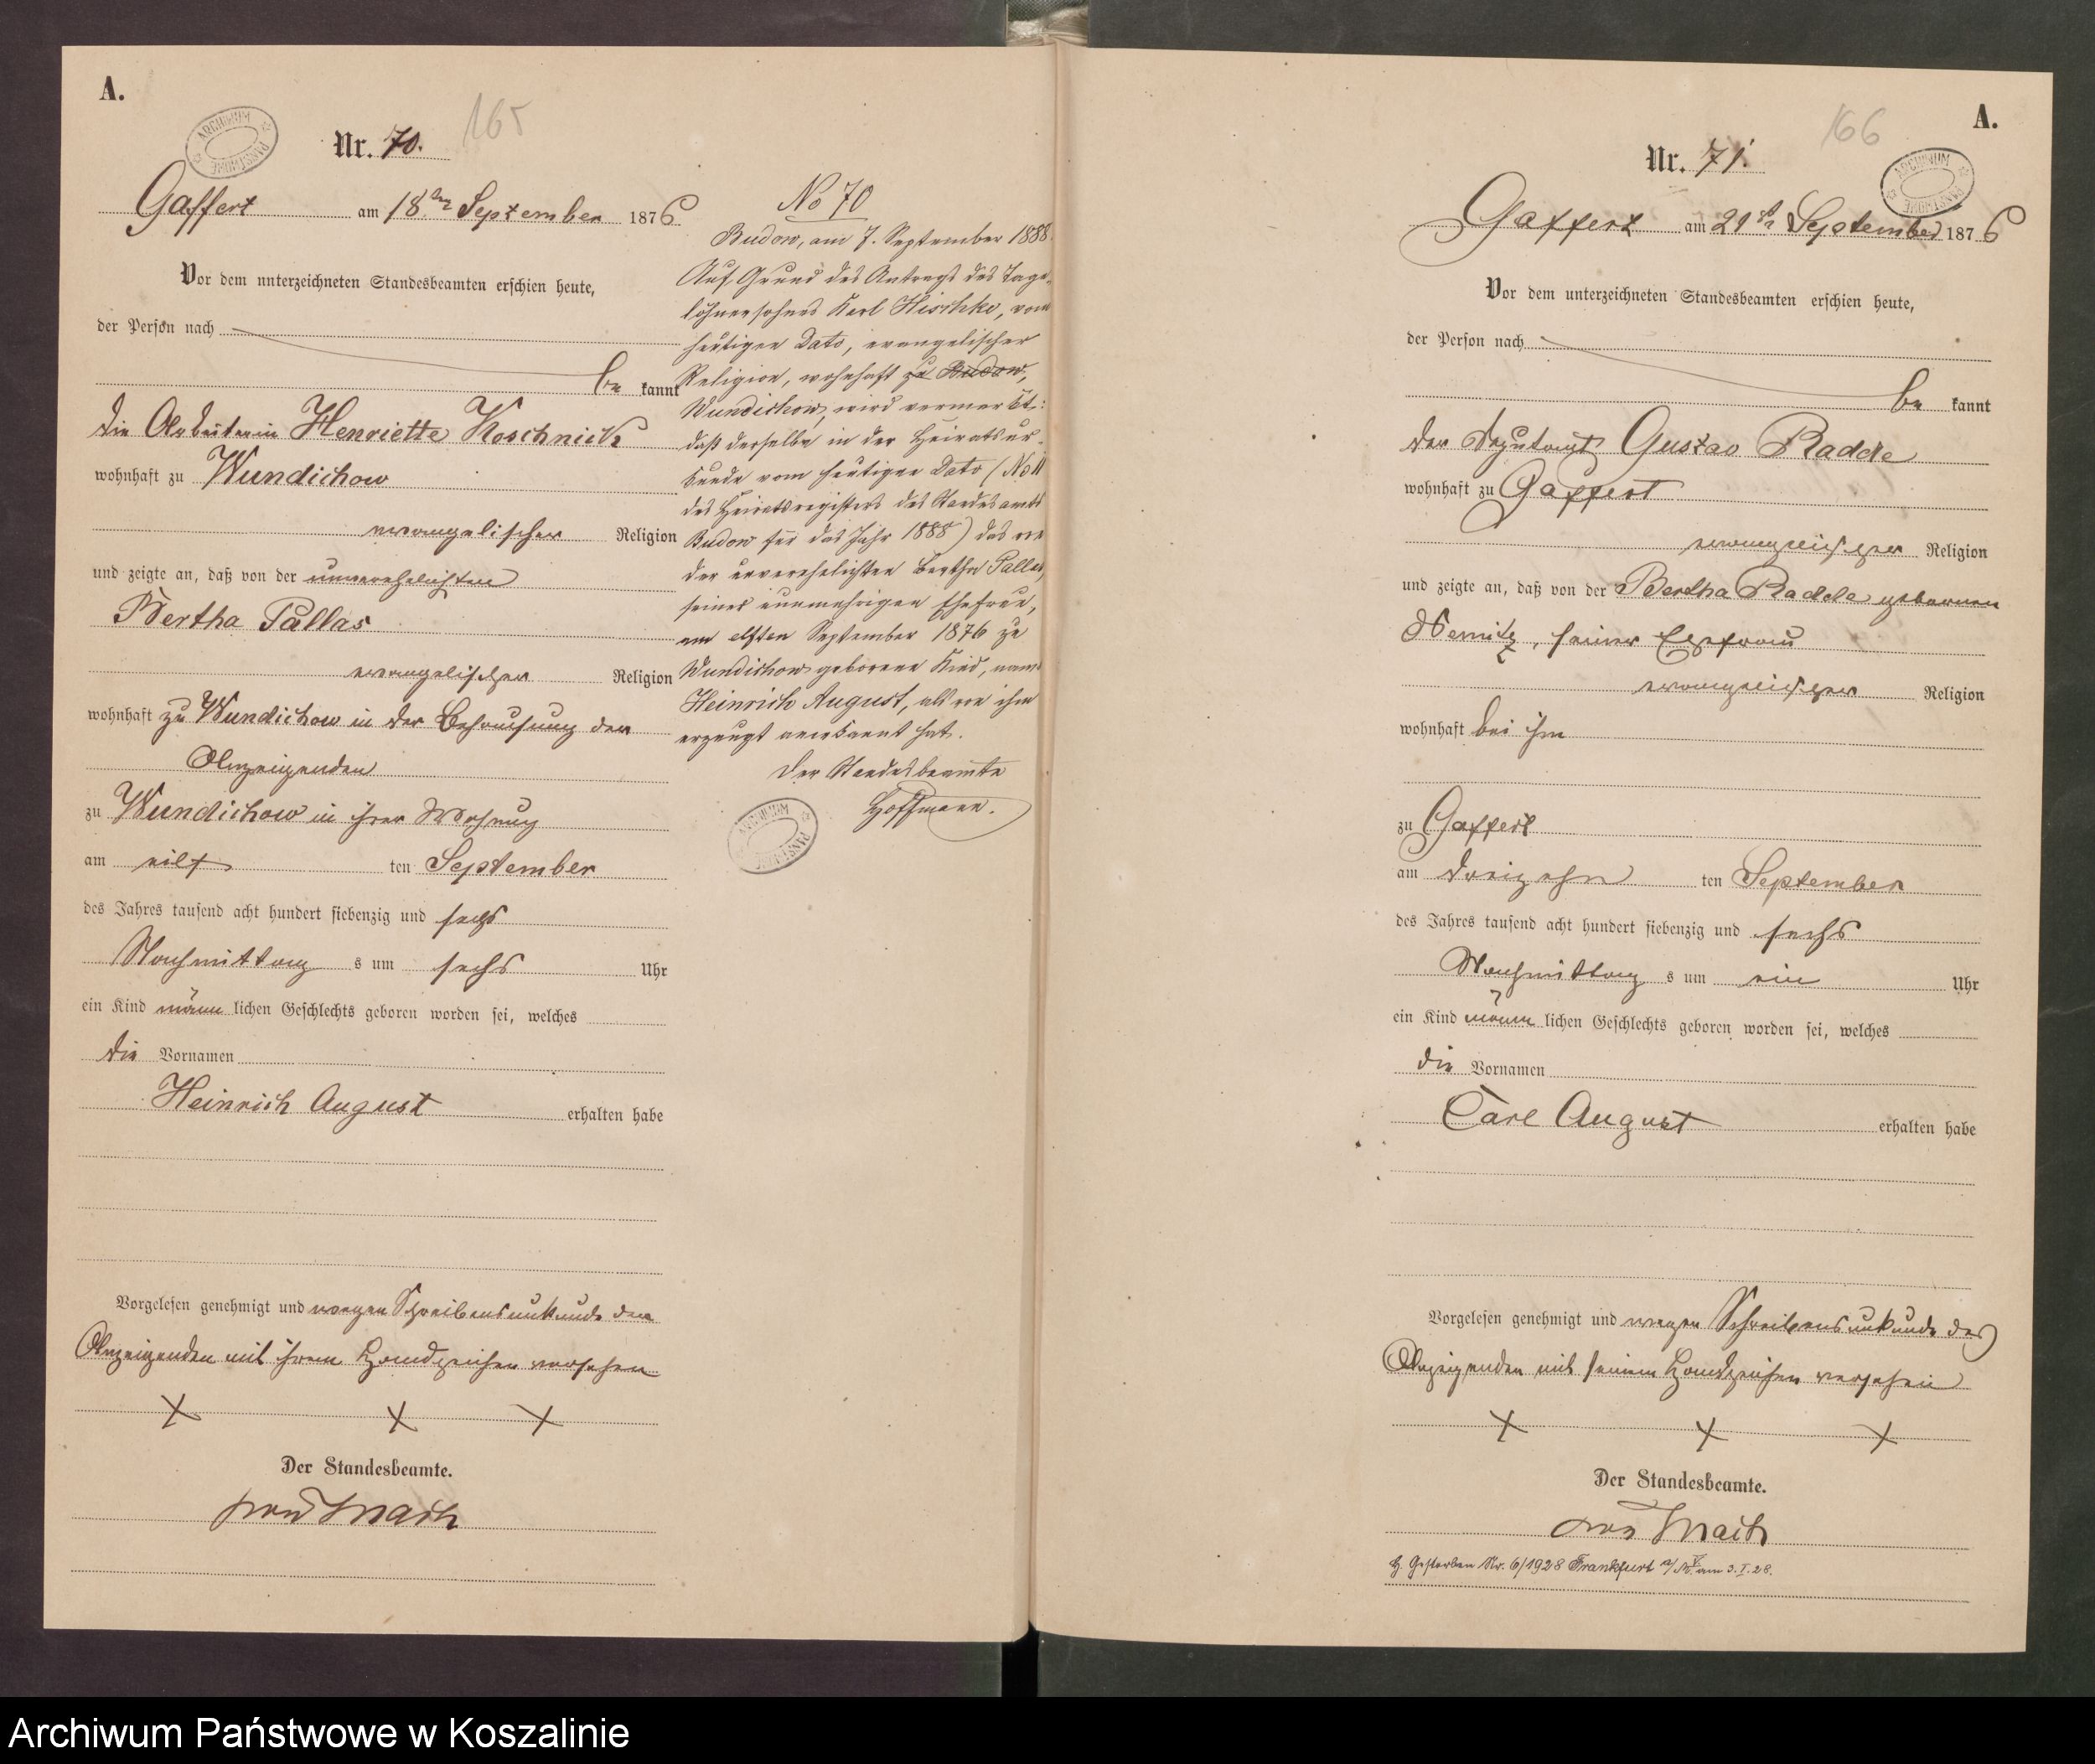 A.
165
Nr. 70.
ARCHIWUM PAŃSTWOWE
Gaffert am 18ten September 1876
Vor dem unterzeichneten Standesbeamten erschien heute,
der Person nach
be kannt
die Arbeiterin Henriette Koschnick
wohnhaft zu Wundichow
evangelischer Religion
und zeigte an, daß von der unverehelichten
Bertha Pallas
evangelischer Religion
wohnhaft zu Wundichow in der Behausung der
Anzeigenden
zu Wundichow in ihrer Wohnung
am eilf ten September
des Jahres tausend acht hundert siebenzig und sechs
Nachmittag s um sechs Uhr
ein Kind männ lichen Geschlechts geboren worden sei, welches
die Vornamen
Heinrich August erhalten habe
Vorgelesen genehmigt und wegen Schreibensunkunde der
Anzeigenden mit ihrem Handzeichen versehen
X X X
Der Standesbeamte.
von Mach
No 70
Budow, am 7. September 1888.
Auf Grund des Antrags des Tage-
löhnersohnes Karl Hischke, vom
heutigen Dato, evangelischer
Religion, wohnhaft zu Budow,
Wundichow, wird vermerkt:
daß derselbe in der Heiratsur-
kunde vom heutigen Dato (No 11
des Heiratsregisters des Standesamts
Budow für das Jahr 1888) das von
der unverehelichten Bertha Pallas,
seiner nunmehrigen Ehefrau,
am elften September 1876 zu
Wundichow geborene Kind, namens
Heinrich August, als von ihm
erzeugt anerkannt hat.
Der Standesbeamte
Hoffmann.
ARCHIWUM PAŃSTWOWE
A.
166
Nr. 71.
ARCHIWUM PAŃSTWOWE
Gaffert am 21ten September 1876
Vor dem unterzeichneten Standesbeamten erschien heute,
der Person nach
be kannt
der Deputant Gustav Radde
wohnhaft zu Gaffert
evangelischer Religion
und zeigte an, daß von der Bertha Radde geborenen
Nemitz, seiner Ehefrau
evangelischer Religion
wohnhaft bei ihm
zu Gaffert
am dreizehn ten September
des Jahres tausend acht hundert siebenzig und sechs
Nachmittag s um ein Uhr
ein Kind männ lichen Geschlechts geboren worden sei, welches
die Vornamen
Carl August erhalten habe
Vorgelesen genehmigt und wegen Schreibensunkunde des
Anzeigenden mit seinem Handzeichen versehen
X X X
Der Standesbeamte.
von Mach
Gestorben Nr. 6/1928 Frankfurt a/M. am 3.I.28.
Archiwum Państwowe w Koszalinie